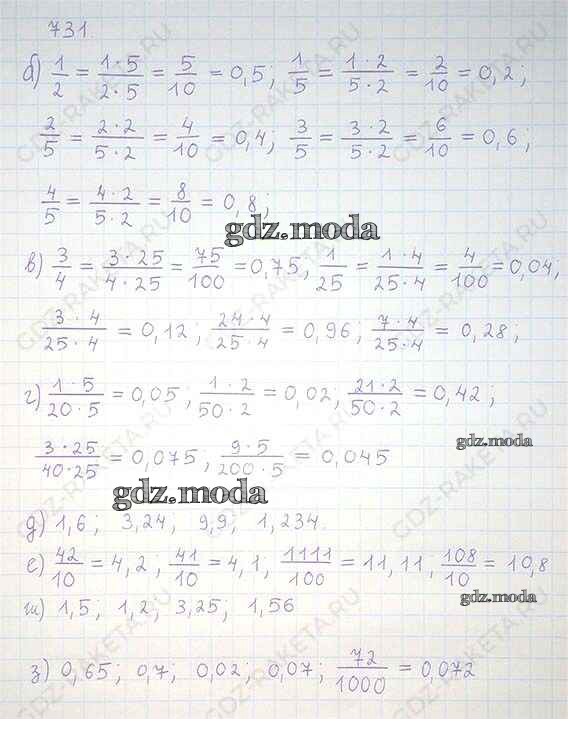 731.
б) 1/2 = 1·5/2·5 = 5/10 = 0,5; 1/5 = 1·2/5·2 = 2/10 = 0,2;
2/5 = 2·2/5·2 = 4/10 = 0,4; 3/5 = 3·2/5·2 = 6/10 = 0,6;
4/5 = 4·2/5·2 = 8/10 = 0,8;
gdz.moda
в) 3/4 = 3·25/4·25 = 75/100 = 0,75, 1/25 = 1·4/25·4 = 4/100 = 0,04;
3·4/25·4 = 0,12; 24·4/25·4 = 0,96; 7·4/25·4 = 0,28;
г) 1·5/20·5 = 0,05; 1·2/50·2 = 0,02; 21·2/50·2 = 0,42;
gdz.moda
3·25/40·25 = 0,075; 9·5/200·5 = 0,045
gdz.moda
д) 1,6; 3,24; 9,9; 1,234.
е) 42/10 = 4,2; 41/10 = 4,1; 1111/100 = 11,11, 108/10 = 10,8
gdz.moda
ж) 1,5; 1,2; 3,25; 1,56
з) 0,65; 0,7; 0,02; 0,07; 72/1000 = 0,072
GDZ-RAKETA.RU